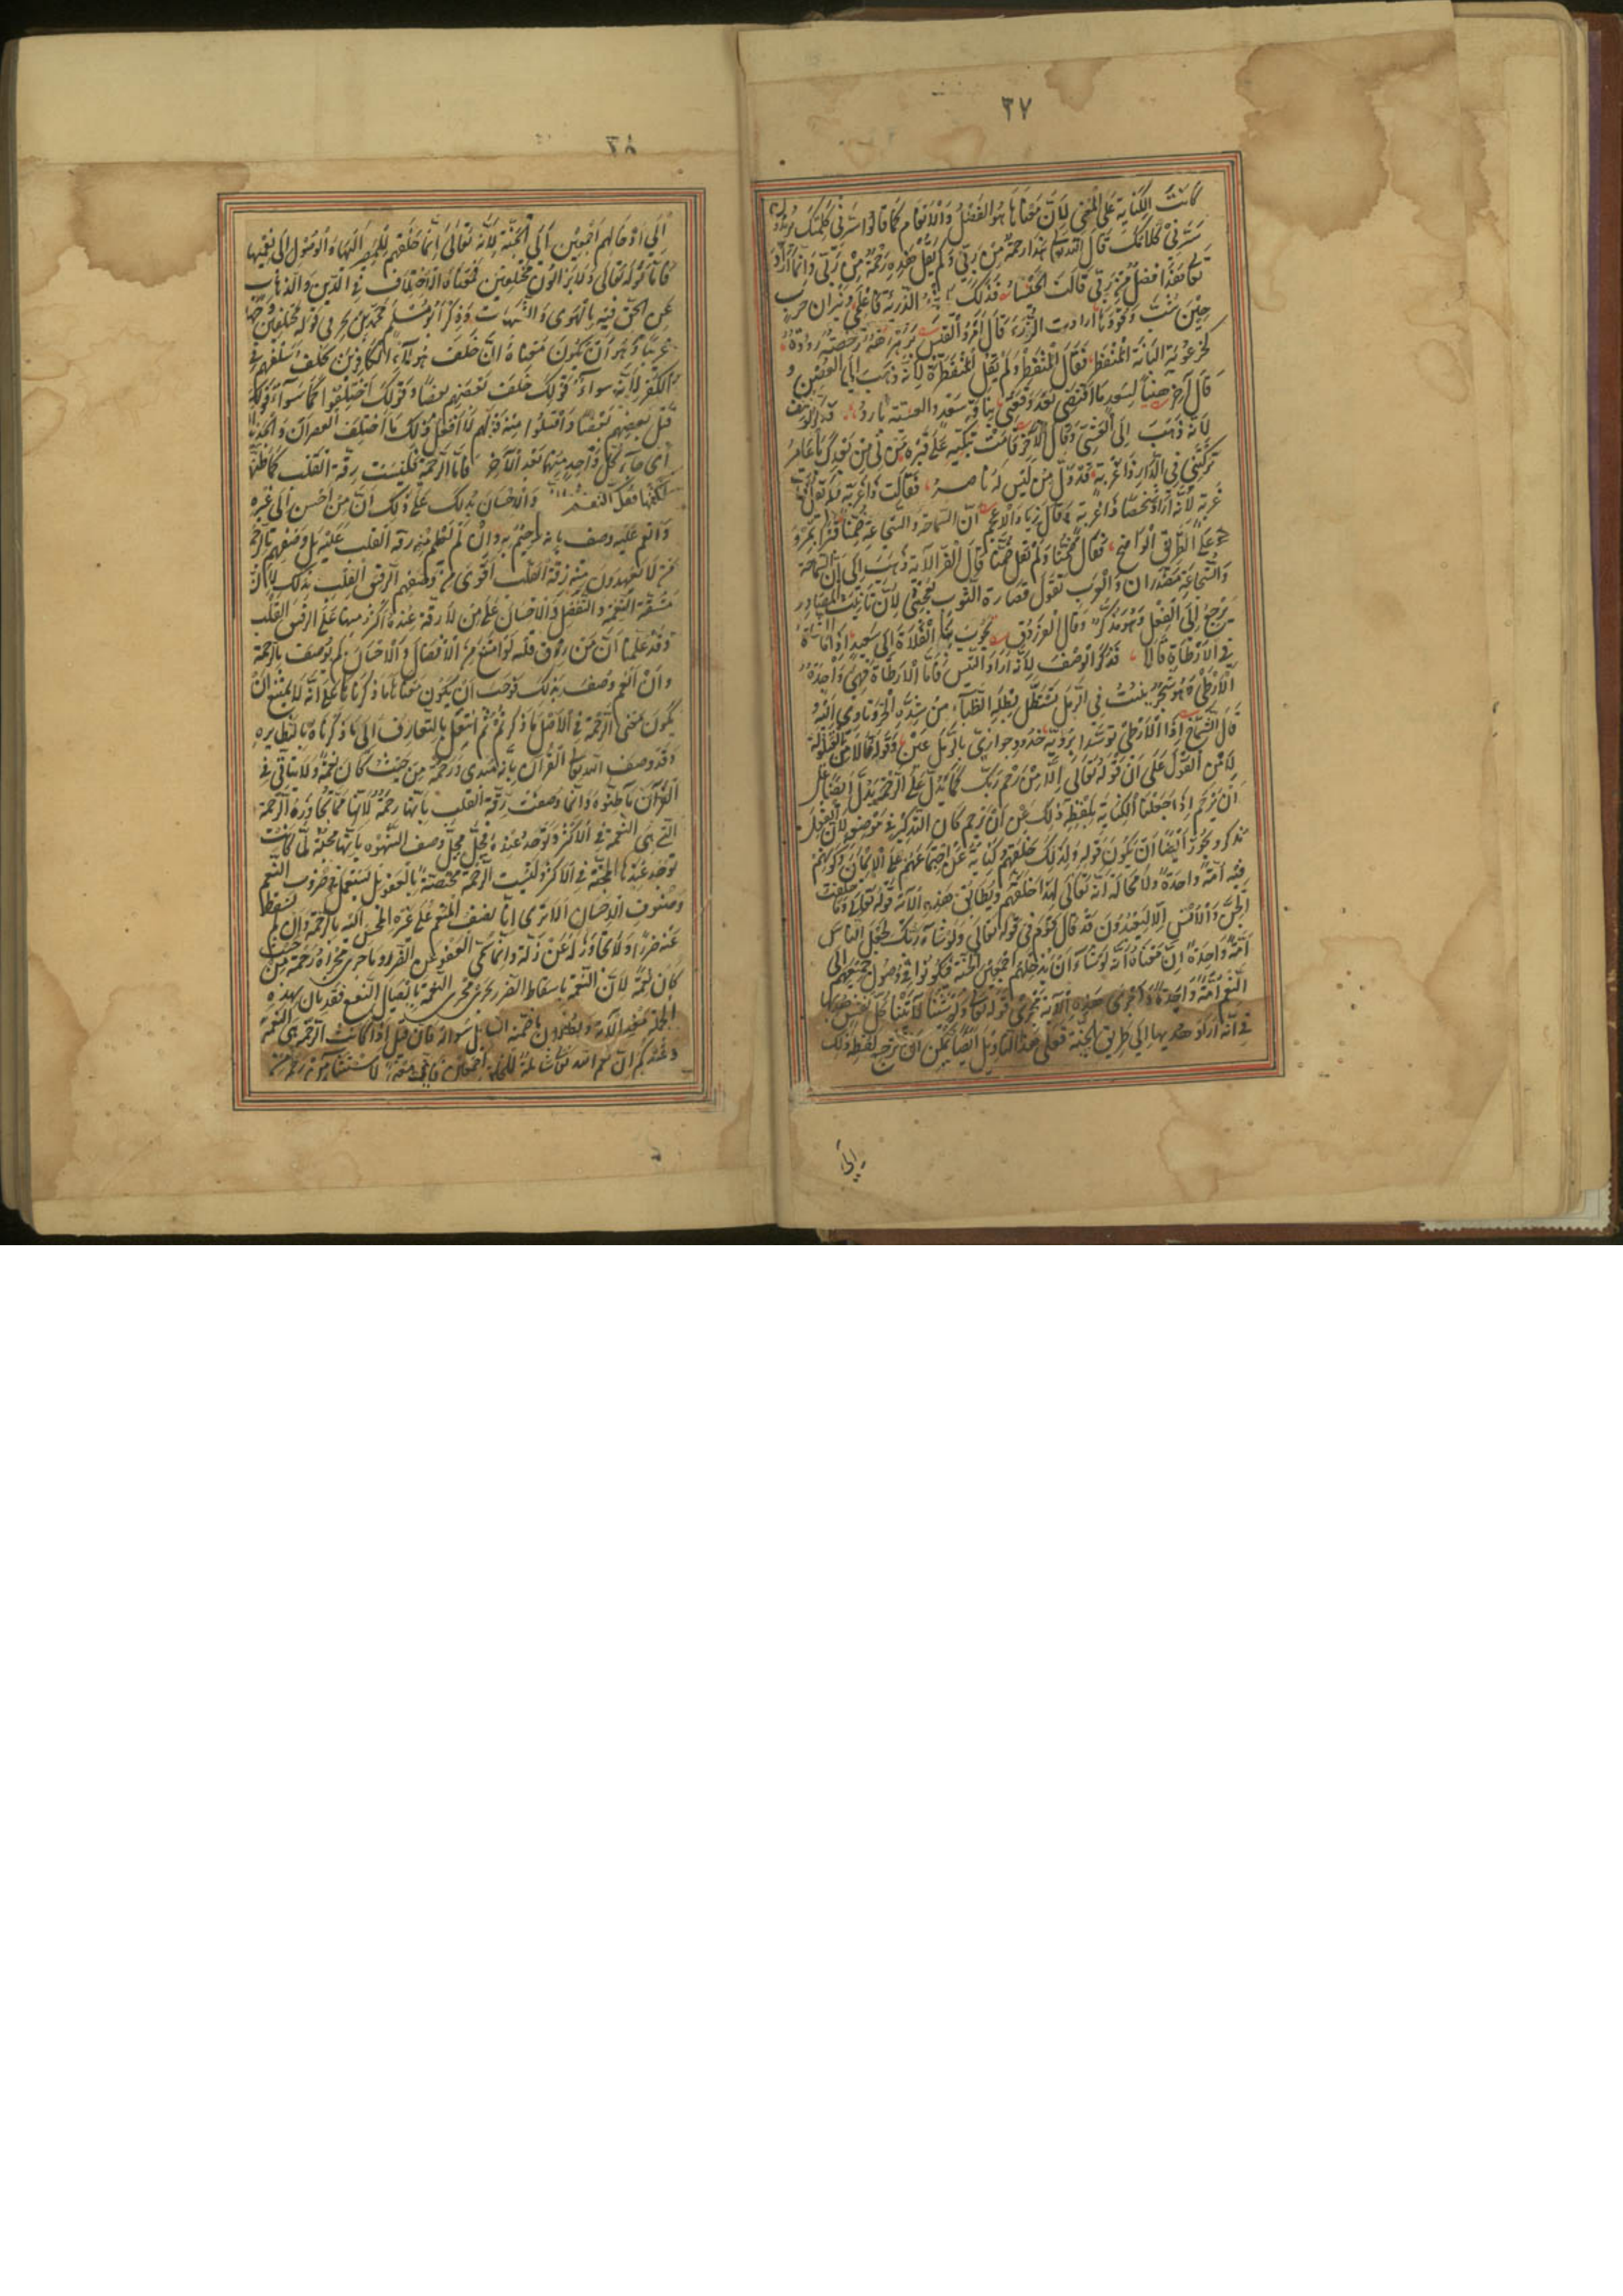 ٣٧
كانت الكناية على المعنى لأن معناها هو الفضل والانعام كما قالوا سرني كلمتك يريدون
سرني كلامك قال الله تعالى هذا رحمة من ربي ولم يقل هذه رحمة من ربي وانما اراد
تعالى هذا فضل من ربي قالت الخنساء فذلك الرزية فاعلمي ونيران حرب
حين شب وقودها أرادت الرزء قال امرؤ القيس برهرهة رخصة رؤدة
كخرعوبة البانة المنفطر فقال المنفطر ولم يقل المنفطرة لأنه ذهب الى الغصن و
قال آخر هنيئا لسعد ما اقتضى بعد وقعتي بناقة سعد والعشية بارد
لأنه ذهب الى العشي وقال الآخر قامت تبكيه على قبره من لي من بعدك يا عامر
تركتني في الدار ذا غربة قد ذل من ليس له ناصر فقالت ذا غربة ولم تقل ذات
غربة لأنه اراد شخصا ذا غربة وقال زياد الاعجم ان السماحة والشجاعة ضمنا قبرا بمرو
على الطريق الواضح فقال ضمنا ولم يقل ضمنتا قال الفراء لأنه ذهب الى ان السماحة
والشجاعة مصدران والعرب تقول قصارة الثوب يعجبني لأن تأنيث المصادر
يرجع الى الفعل وهو مذكر وقال الفرزدق تجوب بنا الفلاة الى سعيد اذا ما الشاة
في الأرطاة قالا فذكر الوصف لأنه اراد التيس فاما الأرطاة فهي واحدة
الأرطى وهو شجر ينبت في الرمل تستظل بظله الظباء من شدة الحر وتأوي اليه و
قال الشماخ اذا الأرطى توسد ابرديه خدود جوازئ بالرمل عين وقوله قالا من القيلولة
لا من القول على ان قوله تعالى الا من رحم ربك كما يدل على الرحمة يدل ايضا على
ان يرحم اذا جعلنا الكناية بلفظة ذلك عن ان يرحم كان التذكير في موضعه لأن الفعل
مذكر ويجوز ايضا ان يكون قوله ولذلك خلقهم كناية عن اجتماعهم على الايمان وكونهم
فيه امة واحدة ولا محالة انه تعالى لهذا خلقهم ويطابق هذه الآية قوله تعالى وما خلقت
الجن والانس الا ليعبدون قد قال قوم في قوله تعالى ولو شاء ربك لجعل الناس
امة واحدة ان معناه انه لو شاء ان يدخلهم اجمعين الجنة فيكونوا في وصول جميعهم الى
النعيم امة واحدة واجرى هذه الآية مجرى قوله تعالى ولو شئنا لآتينا كل نفس هديها
في انه اراد هديها الى طريق الجنة فعلى هذا التأويل ايضا يمكن ان ترجع لفظة ذلك
الى
الى ادخالهم اجمعين الى الجنة لأنه تعالى انما خلقهم للمصير اليها والوصول الى نعيمها
فاما قوله تعالى ولا يزالون مختلفين فمعناه الاختلاف في الدين والذهاب
عن الحق فيه بالهوى والشبهات وذكر ابو مسلم محمد بن بحر في قوله مختلفين وجها
غريبا وهو ان يكون معناه ان خلف هؤلاء الكافرين يخلف سلفهم في
الكفر لأنه سواء قولك خلف بعضهم بعضا وقولك اختلفوا كما سواء قولك
قتل بعضهم بعضا واقتتلوا ومنه قولهم لا افعل ذلك ما اختلف العصران والجديدان
أي جاء كل واحد منهما بعد الآخر فاما الرحمة فليست رقة القلب كما ظنه
لكنها فعل النعم والاحسان يدلك على ذلك ان من احسن الى غيره
وانعم عليه وصف بانه رحيم به وان لم تعلم منه رقة القلب عليه بل وصفهم بالرحمة
من لا يعهدون منه رقة القلب اقوى من وصفهم الرقيق القلب بذلك لان
مشقة النعمة والتفضل والاحسان على من لا رقة عنده اكثر منها على الرقيق القلب
وقد علمنا ان من رق قلبه لو امتنع من الافضال والاحسان لم يوصف بالرحمة
وان انعم وصف بذلك فوجب ان يكون معناها ما ذكرناه على انه لا يمتنع ان
يكون معنى الرحمة في الاصل ما ذكرتم ثم انتقل بالتعارف الى ما ذكرناه كنظائره
وقد وصف الله تعالى القرآن بانه هدى ورحمة من حيث كان نعمة ولا يتأتى في
القرآن ما ظنوه وانما وصفت رقة القلب بانها رحمة لأنها مما تجاوره الرحمة
التي هي النعمة في الاكثر وتوجد عنده فحل محل وصف الشهوة بانها محبة لما كانت
توجد عندها المحبة في الاكثر وليست الرحمة مختصة بالعفو بل تستعمل في ضروب النعم
وصنوف الاحسان الا ترى انا نصف المنعم على غيره المحسن اليه بالرحمة وان لم يسقط
عنه ضررا ولا تجاوز له عن زلة وانما سمي العفو عن الضرر وما جرى مجراه رحمة من حيث
كان نعمة لأن النعمة باسقاط الضرر تجري مجرى النعمة بايصال النفع فقد بان بهذه
الجملة معنى الآية وبطلان ما ضمنه السائل سؤاله فان قيل اذا كانت الرحمة هي النعمة
وعندكم ان نعم الله تعالى شاملة للخلق اجمعين فاي معنى لاستثناء من رحم من